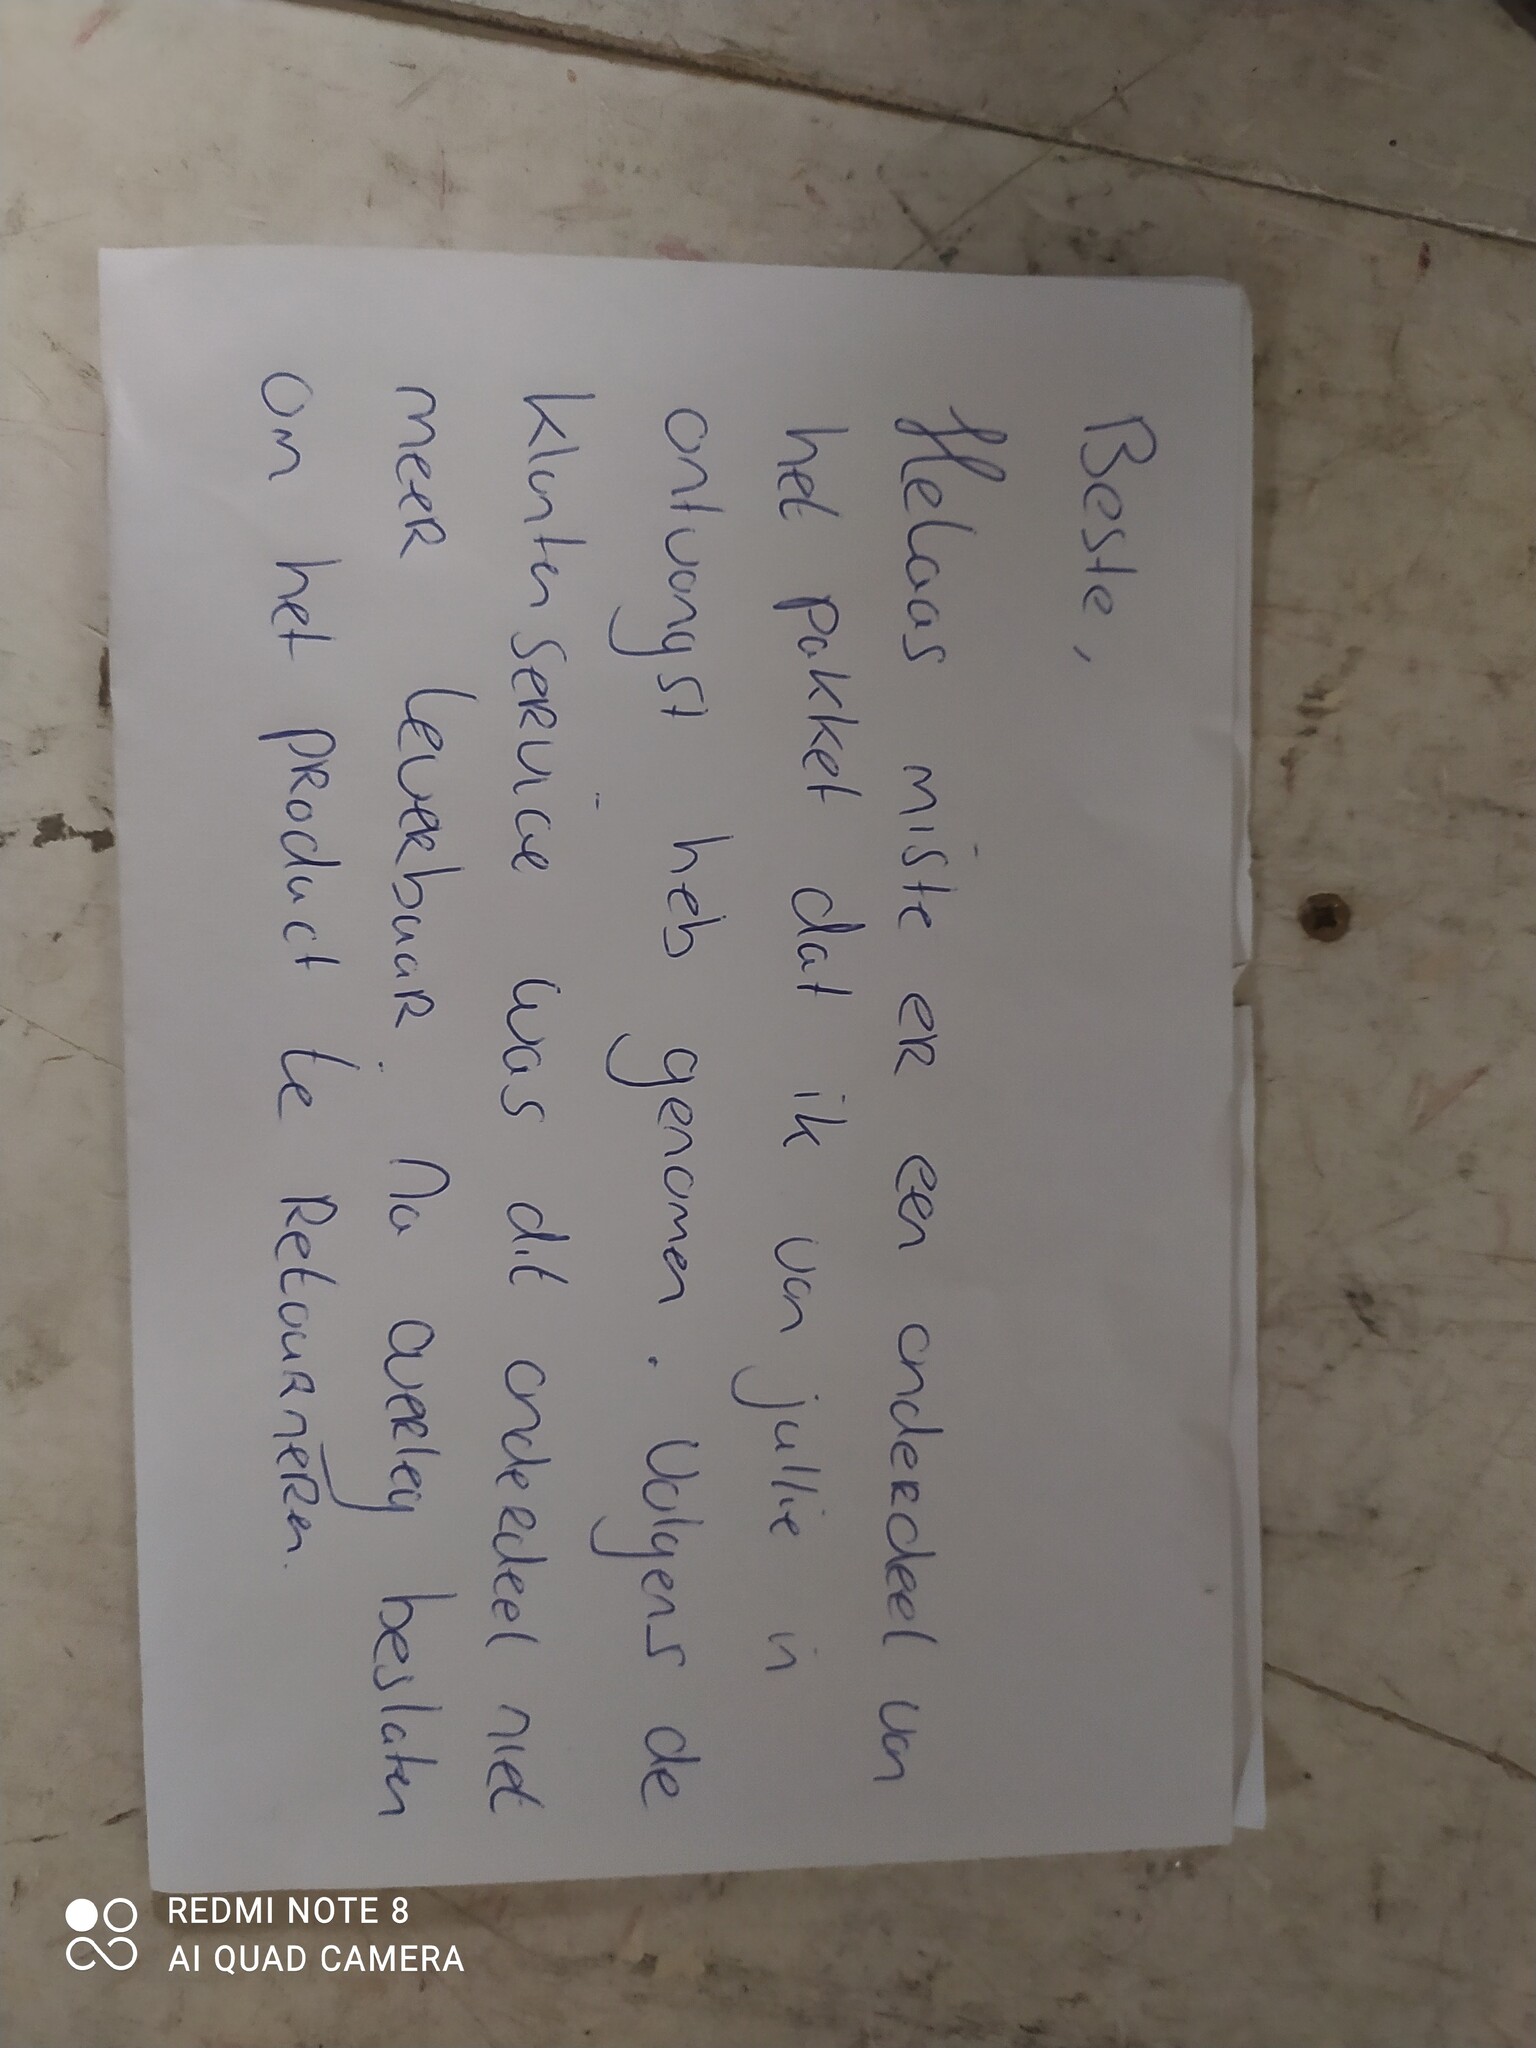 Beste,
Helaas miste er een onderdeel van
het pakket dat ik van jullie in
ontvangst heb genomen. Volgens de
klantenservice was dit onderdeel niet
meer leverbaar. Na overleg besloten
om het product te Retourneren.
REDMI NOTE 8
AI QUAD CAMERA